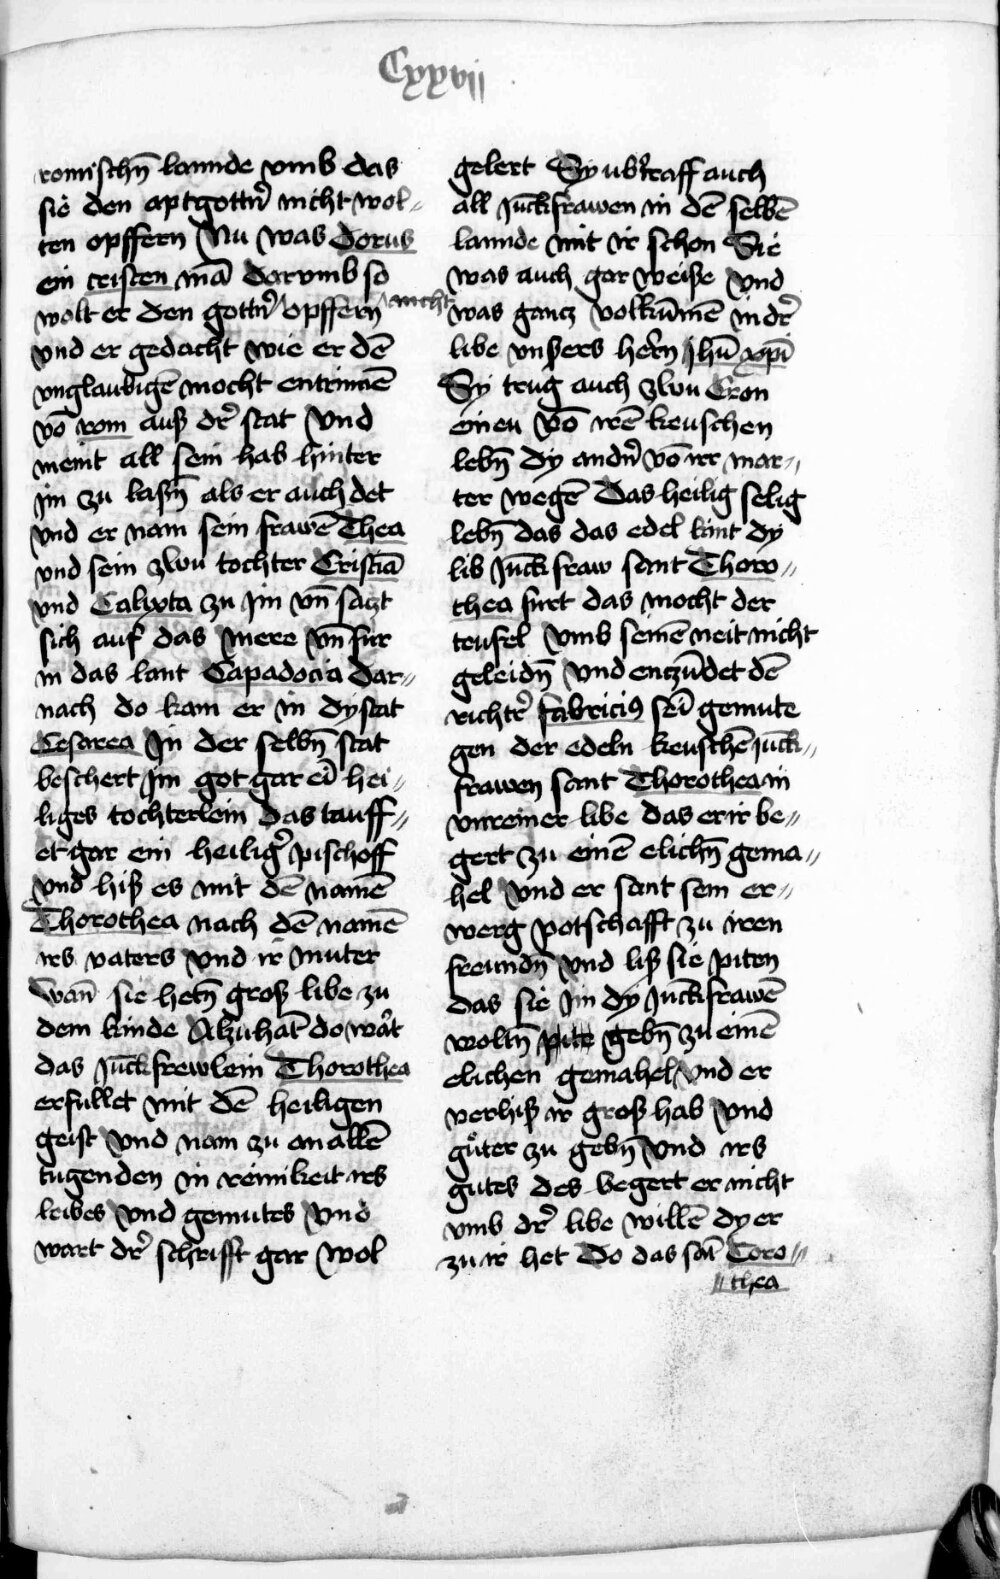 Cxxvij
romischn̄ lannde vmb das
sie den aptgottn̄ nicht wol⸗
ten opffern Nu was Dorus
ein cristen mā Darvmb so
wolt er den gottn̄ opffern nicht
vnd er gedacht wie er dē
vnglaubigē mocht entrinnē
vō rom auß dr̄ stat Vnd
meint all sein hab hinter
jm zu lasn̄ als er auch det
vnd er nam sein frawē Thea
vnd sein zwu tochter Cristiā
vnd Calixta zu jm vn̄ saczt
sich auf das mere vn̄ fur
in das lant Capadocia Dar⸗
nach do kam er in dy stat
Cesarea In der selbn̄ stat
beschert jm got gar eī hei⸗
liges tochterlein Das tauff⸗
et gar ein heiligr̄ pischoff
vnd hiß es mit dē namē
Thorothea nach dē namē
irs vaters vnd ir muter
wan̄ sie hetn̄ groß libe zu
dem kinde Alzuhāt do wart
das Juckfrewlein Thorothea
erfullet mit dē heiligen
geist Vnd nam zu an allē
tugenden in reinikeit irs
leibes Vnd gemutes Vnd
wart dr̄ schrifft gar wol
gelert Sy ubr̄traff auch
all Juckfrawen in dē selbē
lannde mit ir schon Sie
was auch gar weiße Vnd
was gancz volkūmē in dr̄
libe vnsers hern̄ Jhū xp̄i
Sy trug auch zwu Cron
einen vō irē keuschen
lebn̄ dy andn̄ vō irr mar⸗
ter wegē Das heilig selig
lebn̄ das das edel kint dy
lib Juckfraw sant Thoro⸗
thea furt das mocht der
teufel vmb seinē neit nicht
geleidn̄ Vnd enczūdet dē
richtr̄ fabricius seī gemute
gen der edeln keuschē Juck⸗
frawen sant Thorothea in
vnreiner libe das er ir be⸗
gert zu einē elichn̄ gema⸗
hel Vnd er sant sein er⸗
werg potschafft zu iren
freundn̄ Vnd liß sie piten
das sie jm dy Juckfrawē
woltn̄ pite gebn̄ zu einē
elichen gemahel Vnd er
verhiß ir groß hab Vnd
guͦter zu gebn̄ Vnd irs
gutes des begert er nicht
vmb dr̄ libe willē dy er
zu ir het Do das sāt Doro⸗
⸗thea